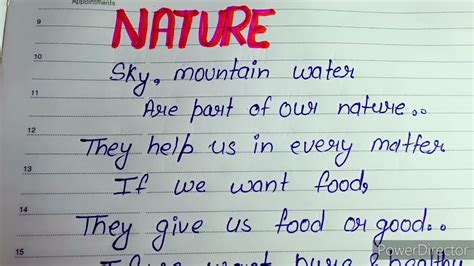 Appointments
9
NATURE
10
Sky, mountain water
11
Are part of our nature..
12
They help us in every matter
13
If we want food,
14
They give us food or good..
PowerDirector
15